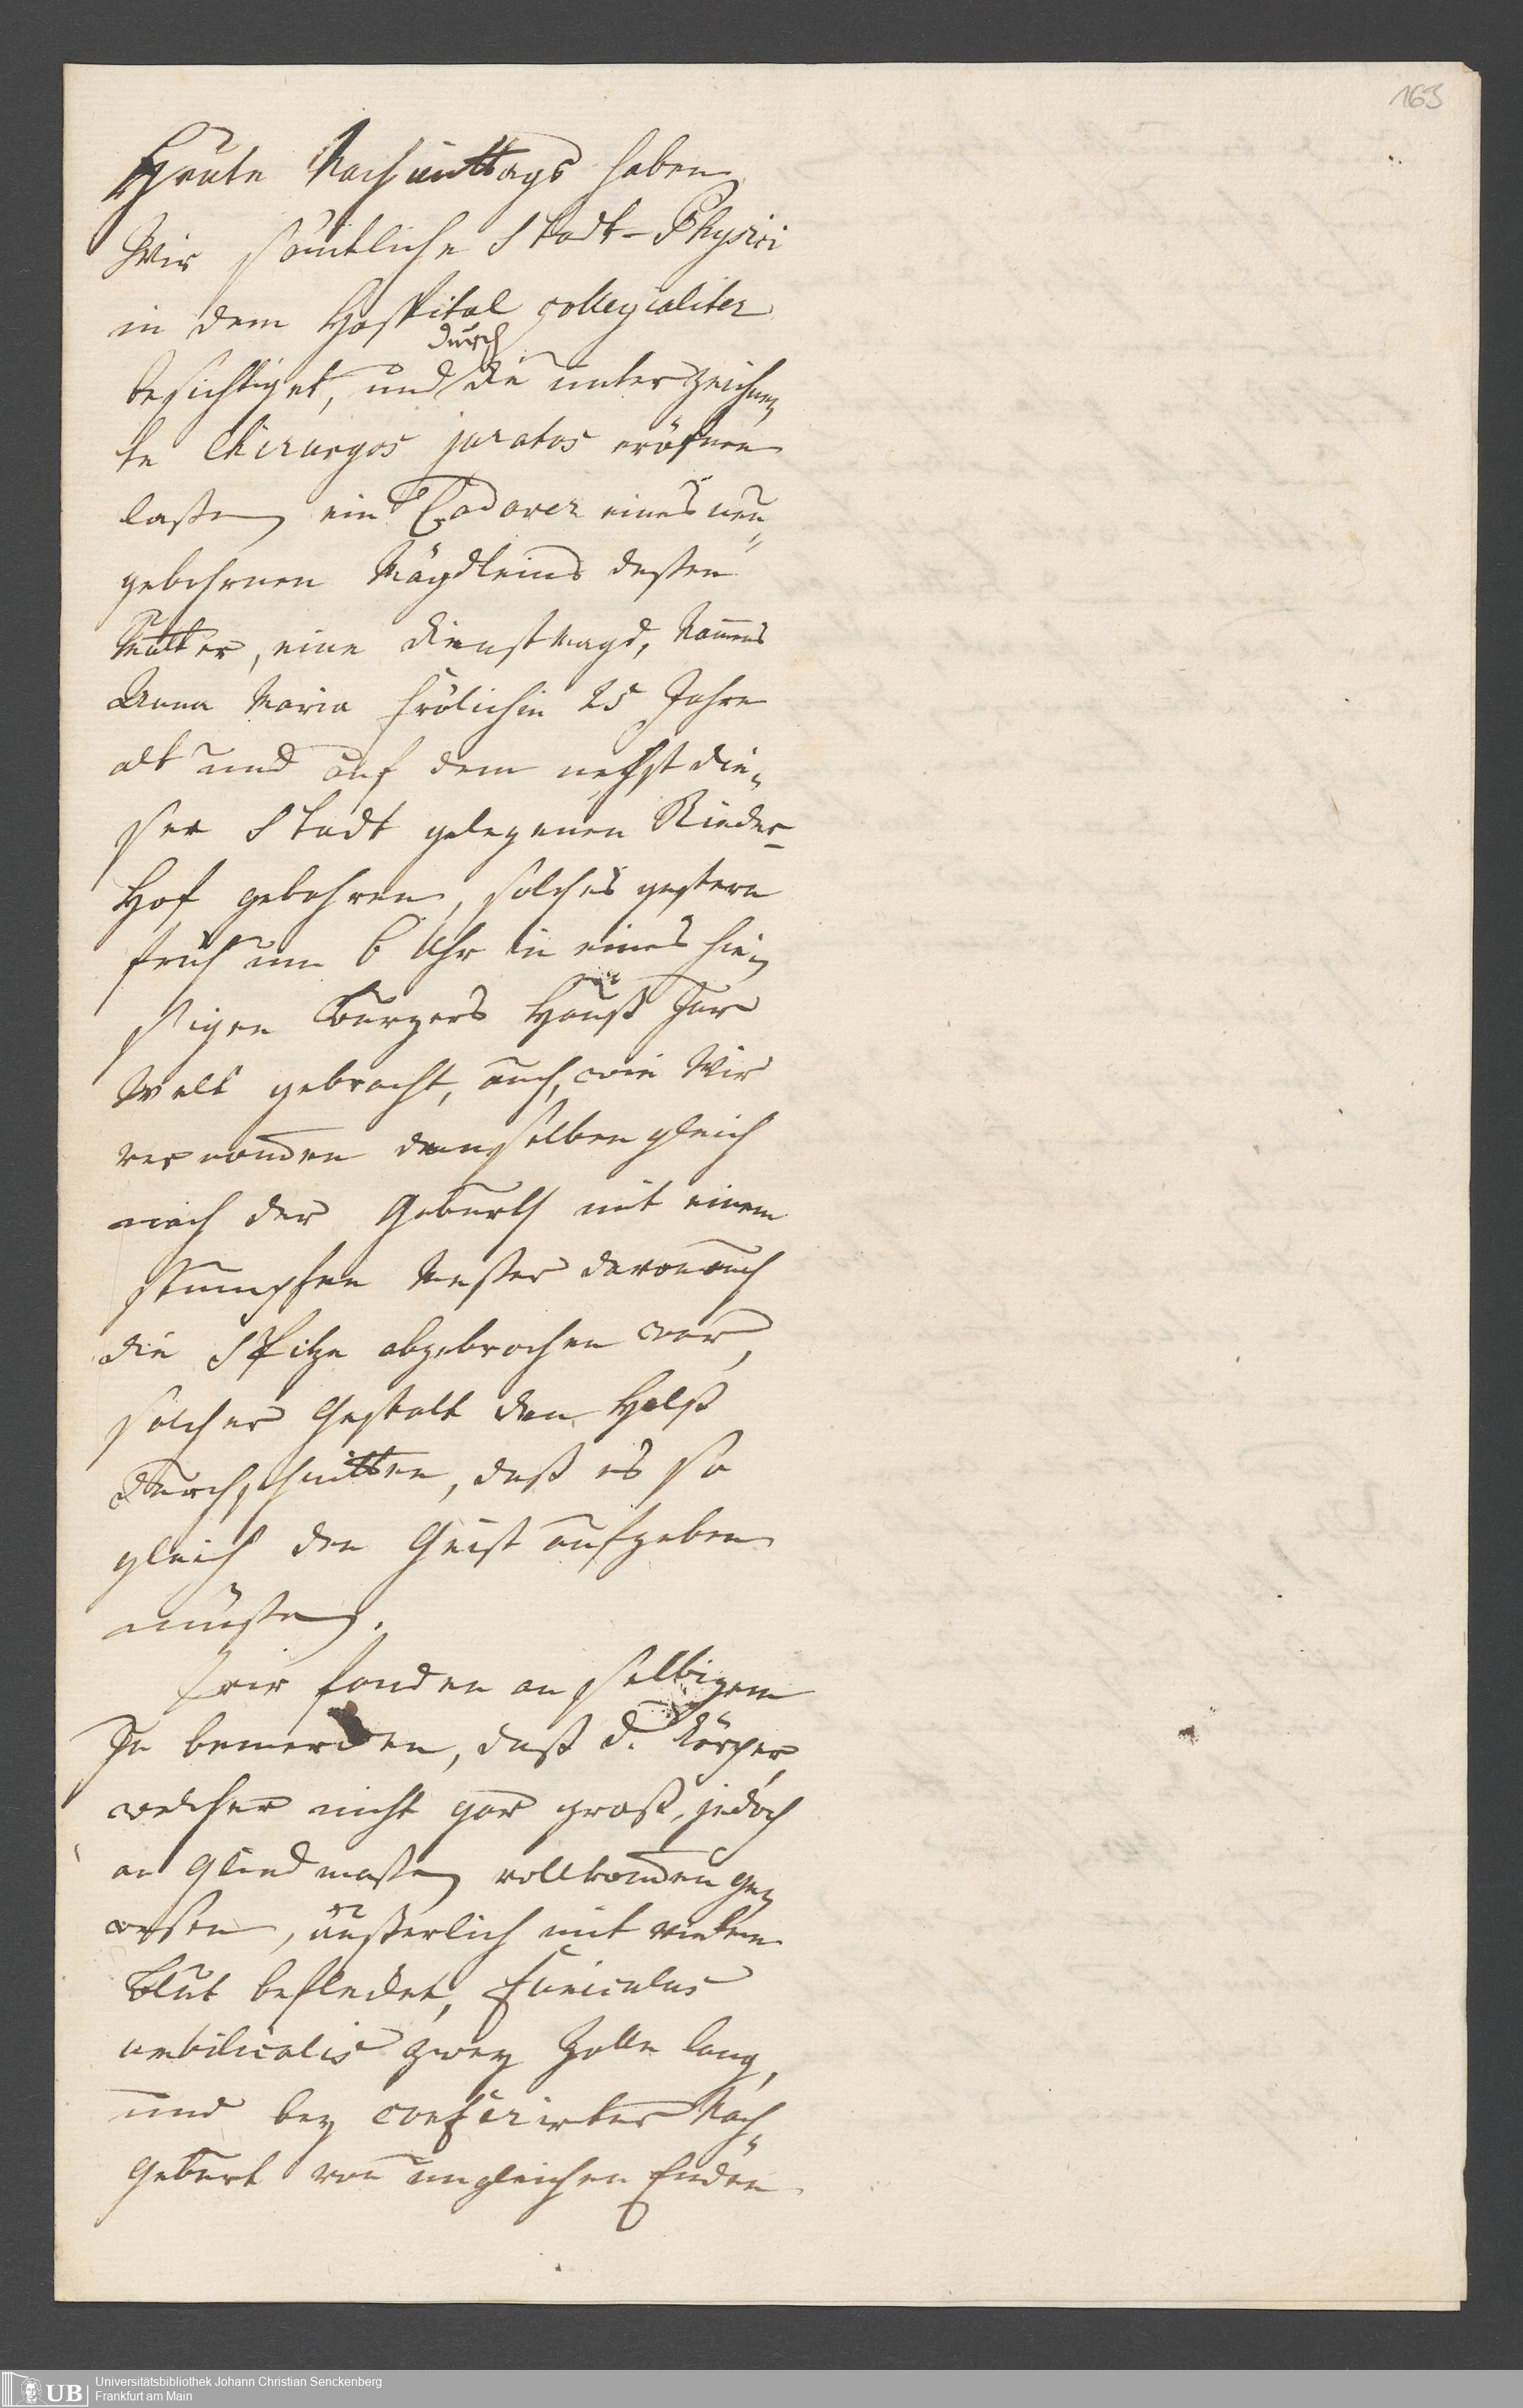 163
Heute Nachmittags haben
Wir sämtliche Stadt-Physici
in dem Hospital collegialiter
durch
besichtiget, und die unterzeichne„
te Chirurgos juratos eröfnen
laßen, ein Cadaver eines neu„
gebohrnen Mägdleins deßen
Mutter, eine Dienstmagd, Namens
Anna Maria Frölichin 25 Jahre
alt und auf dem nechst die„
ser Stadt gelegenen Rieder-
Hof gebohren, solches gestern
früh um 6 Uhr in eines hie„
sigen Burgers Hauß Zur
Welt gebracht, auch, wie Wir
vernomen demselben gleich
nach der Geburth mit einem
stumpfen Meßer davon auch
die Spitze abgebrochen war,
solcher Gestalt den Halß
durchschnitten, daß es so
gleich den Geist aufgeben
müßen.
Wir fanden an selbigem
Zu bemercken, daß d. Körper,
welcher nicht gar groß, jedoch
an Gliedmaßen vollkomen ge„
wesen, äußerlich mit vielem
Blut beflecket, Funiculus
umbilicalis zwey Zolle lang,
und bey conferirter Nach„
geburt von ungleichen Enden
UB
Universitätsbibliothek Johann Christian Senckenberg
Frankfurt am Main